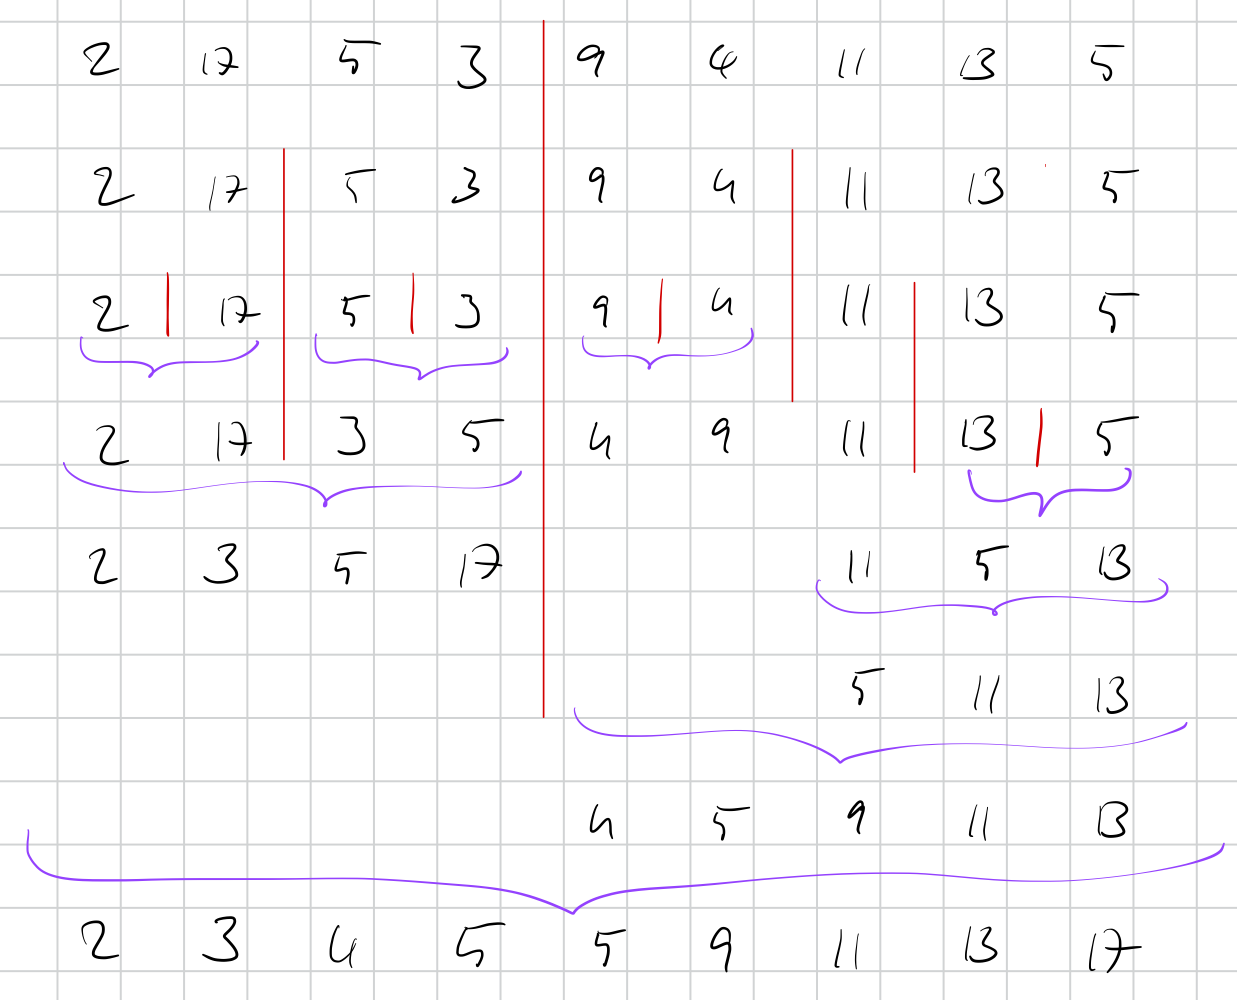 2 17 5 3 9 4 11 13 5
2 17 5 3 9 4 11 13 5
2 17 5 3 9 4 11 13 5
2 17 3 5 4 9 11 13 5
2 3 5 17 11 5 13
5 11 13
4 5 9 11 13
2 3 4 5 5 9 11 13 17